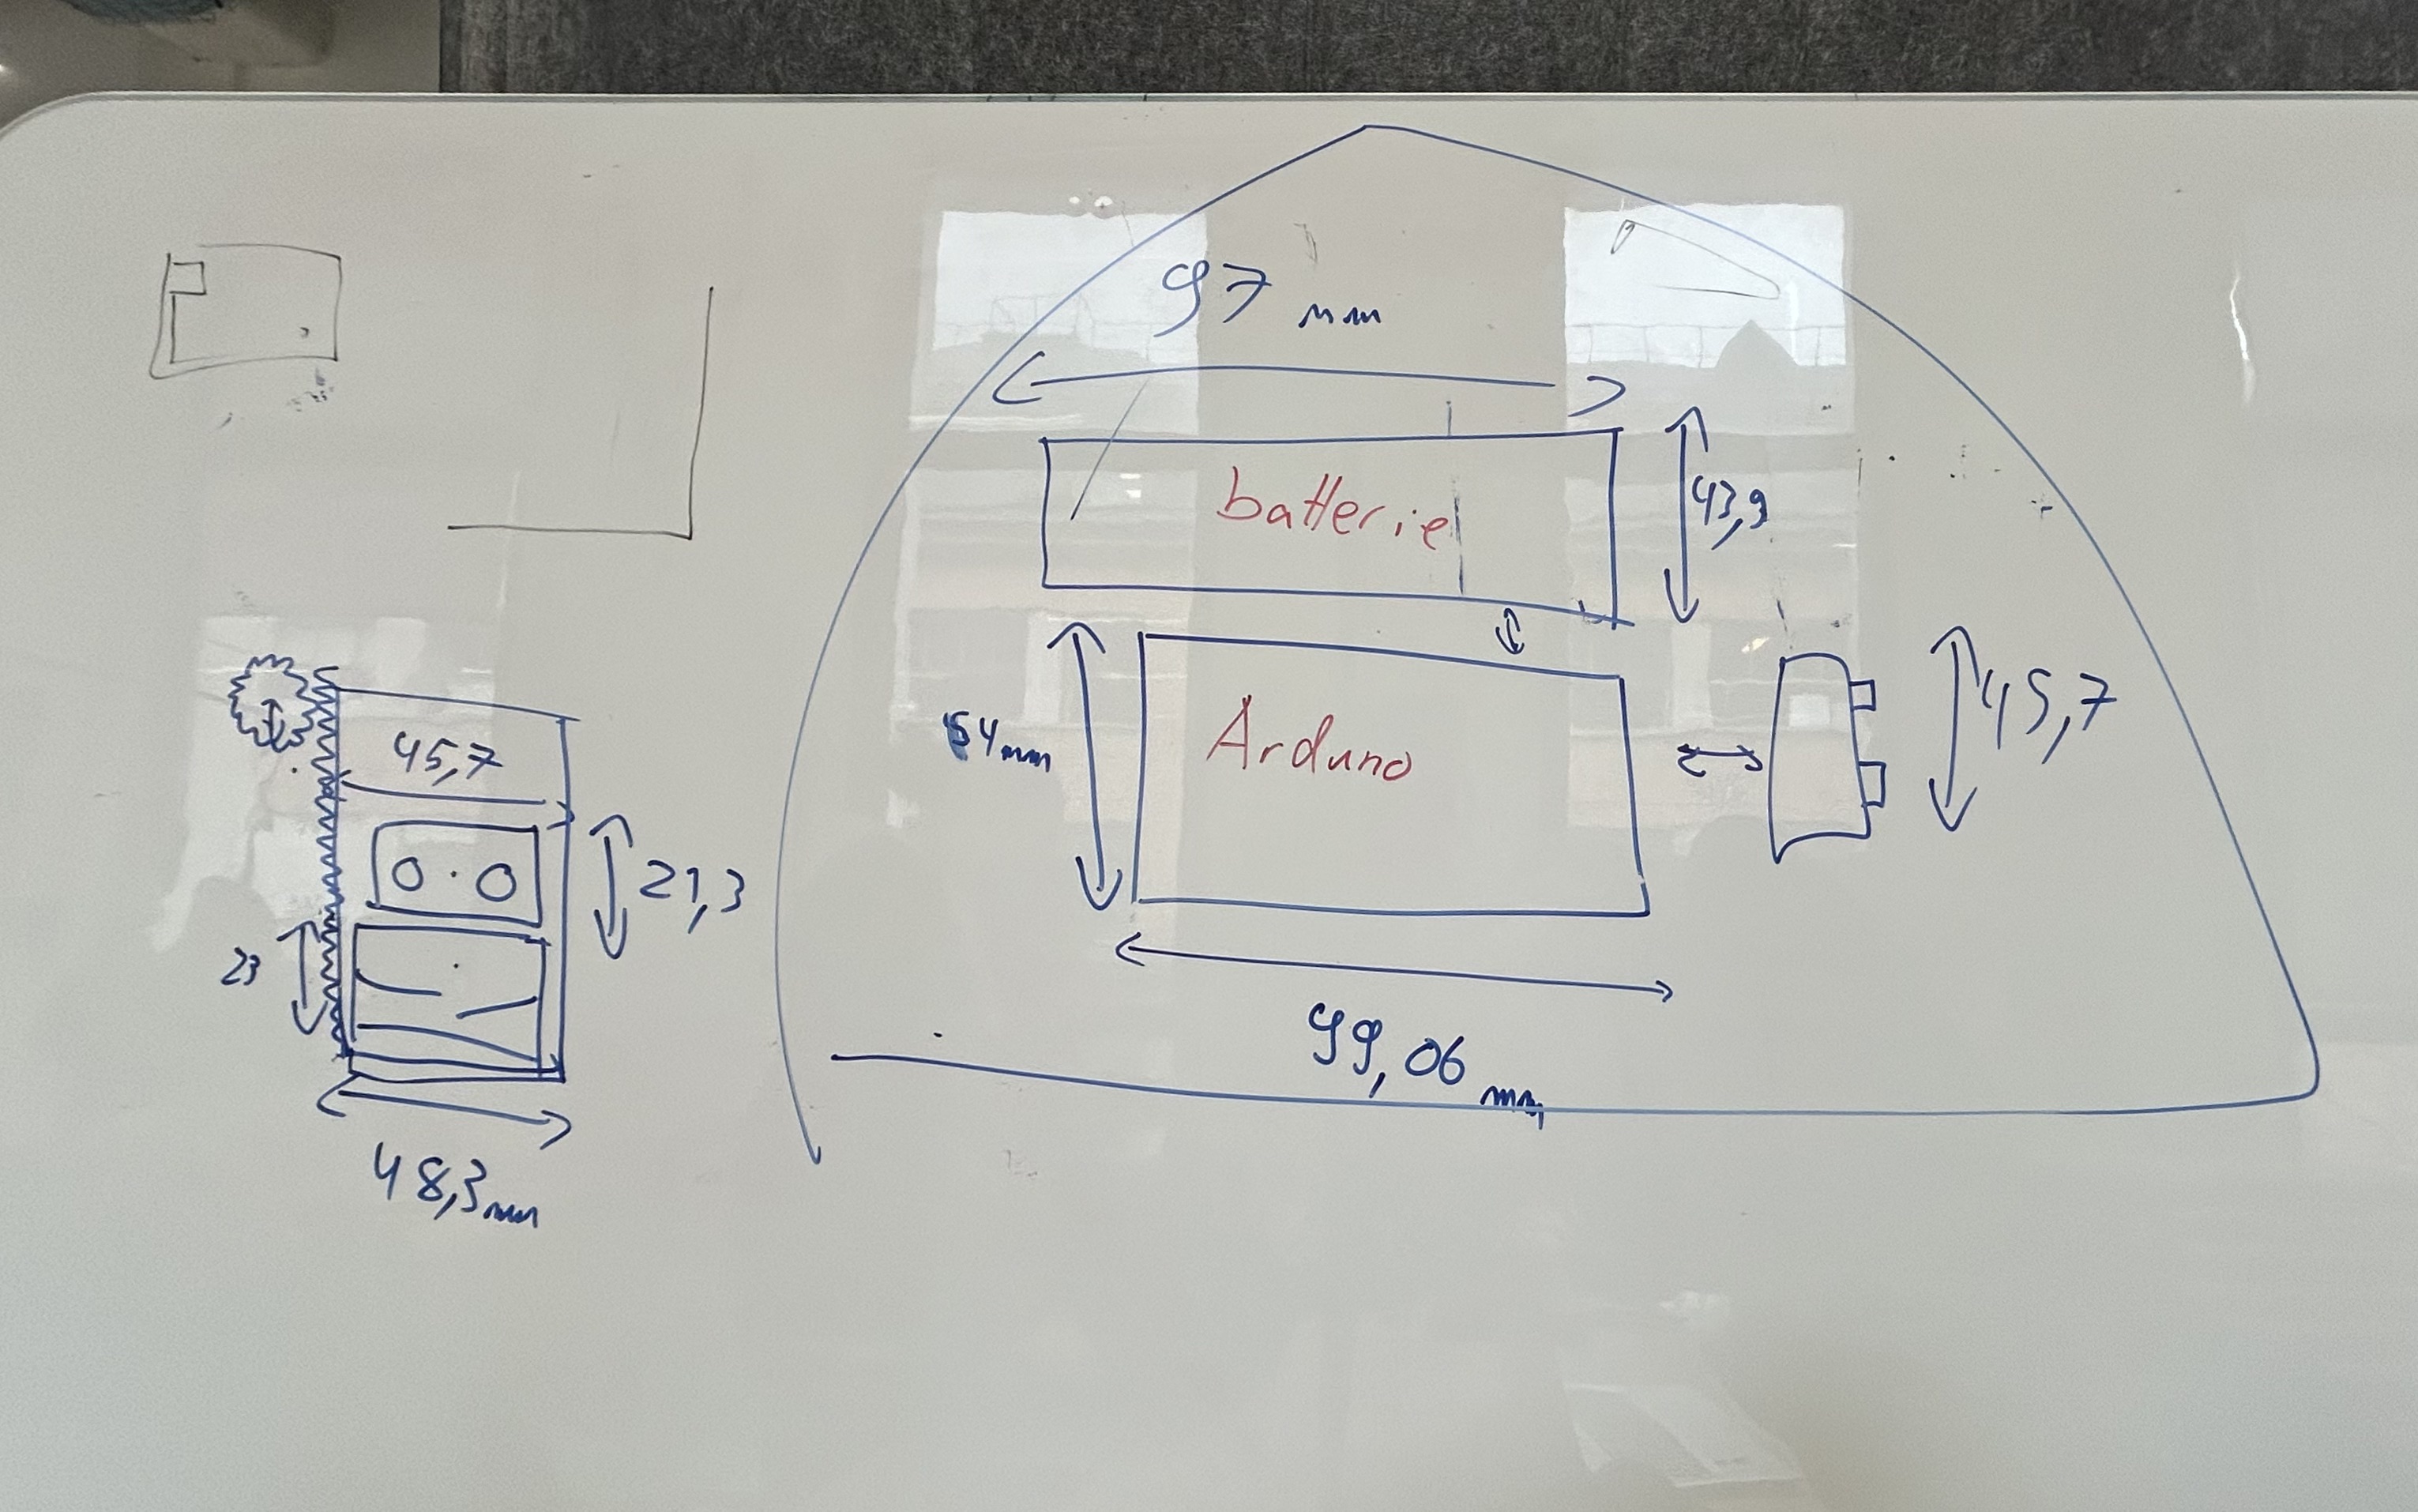 97 mm
batterie
43,9
54mm
Arduno
45,7
99,06 mm
45,7
21,3
23
48,3mm